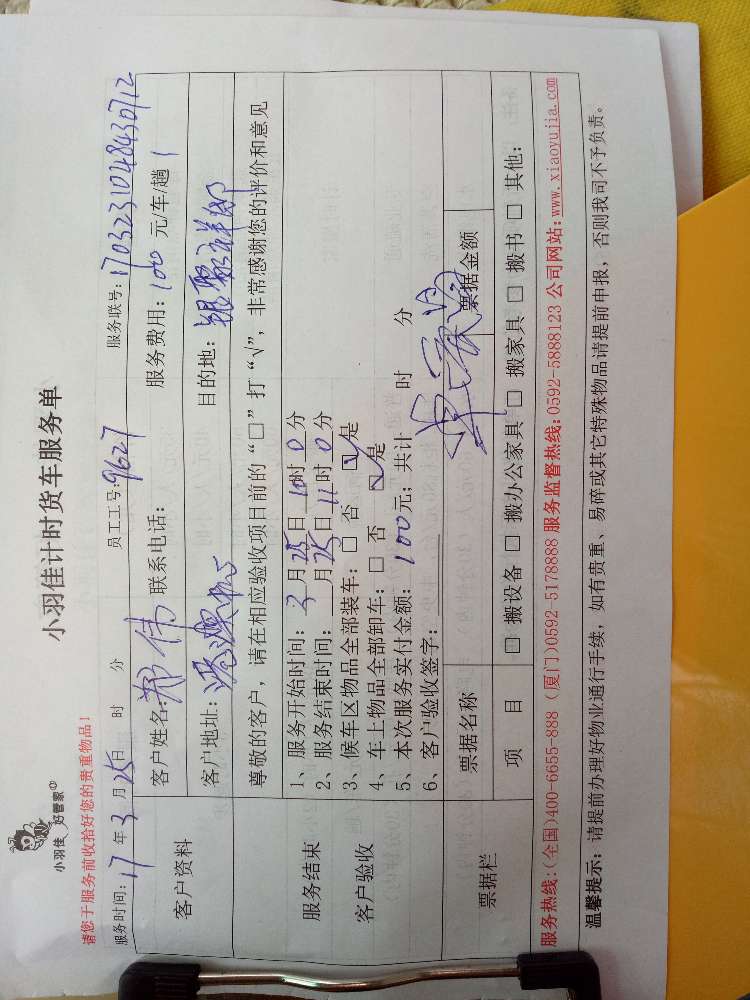 小羽佳 好管家
小羽佳计时货车服务单
请您于服务前收拾好您的贵重物品！
服务时间：17年3月25日 时 分 员工工号：9627 服务联号：1703231048430712
客户资料
客户姓名：郑伟 联系电话： 服务费用：100元/车/趟 1
客户地址：港澳中心 目的地：
尊敬的客户，请在相应验收项目前的“□”打“√”，非常感谢您的评价和意见
服务结束
客户验收
1、服务开始时间：3月25日10时0分
2、服务结束时间： 月25日11时0分
3、候车区物品全部装车：□ 否 ☑ 是
4、车上物品全部卸车：□ 否 ☑ 是
5、本次服务实付金额：100元；共计 时 分
6、客户验收签字：
票据栏
票据名称 票据金额
项 目 □ 搬设备 □ 搬办公家具 □ 搬家具 □ 搬书 □ 其他：
服务热线：（全国）400-6655-888 （厦门）0592-5178888 服务监督热线：0592-5888123 公司网站：www.xiaoyujia.com
温馨提示：请提前办理好物业通行手续，如有贵重、易碎或其它特殊物品请提前申报，否则我司不予负责。